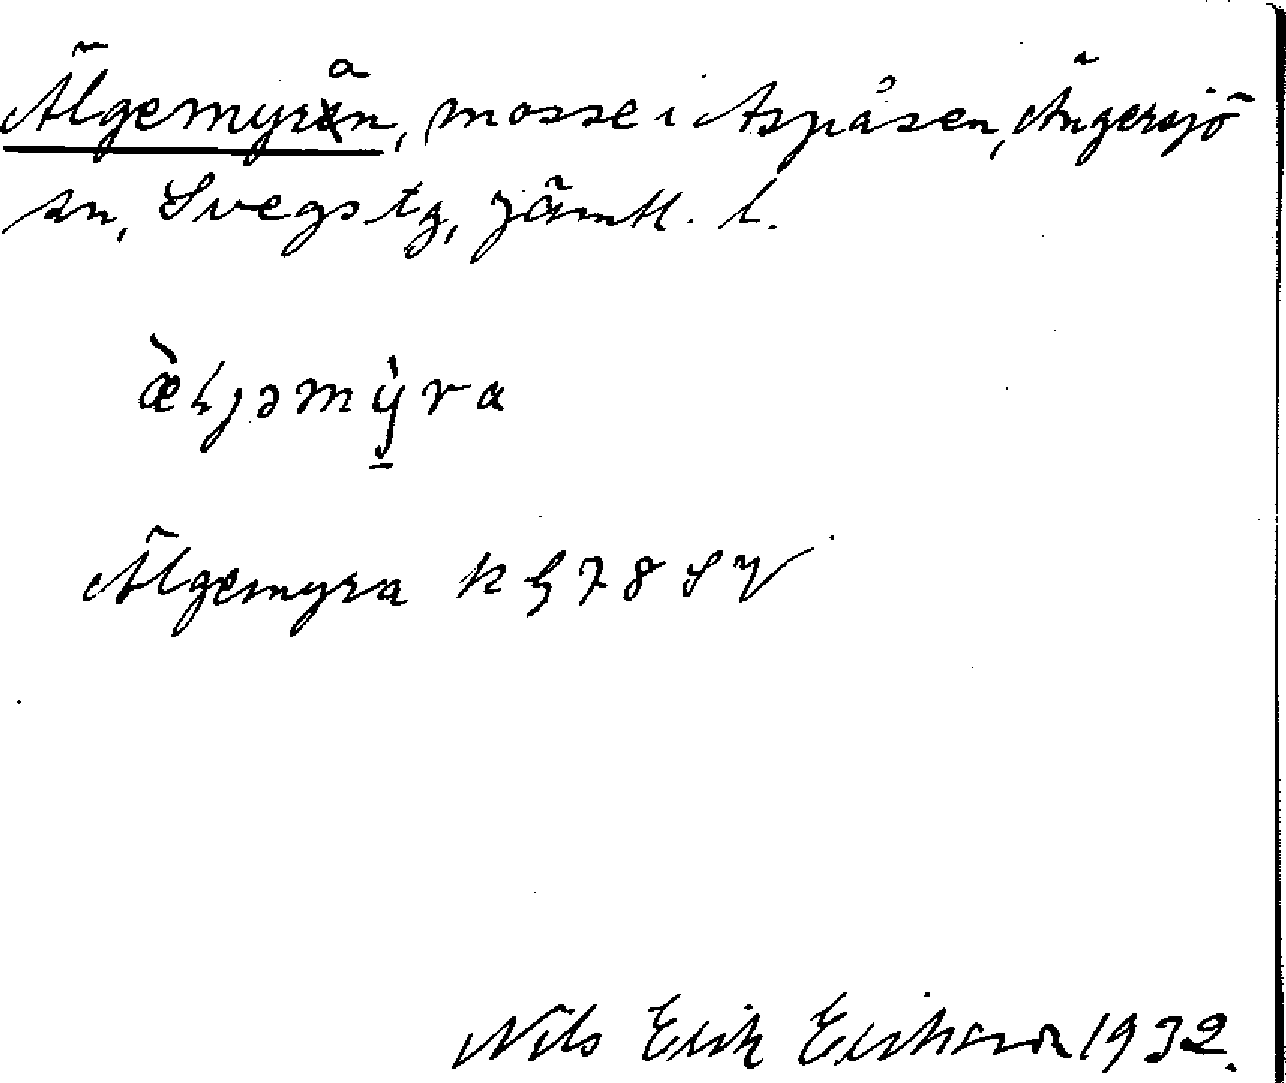 Älgemyran, mosse i Aspåsen, Ängersjö
sn, Svegs tg, Jämtl. l.
Älgemyra k 5 7 8 S V
Nils Erik Erikson 1932.